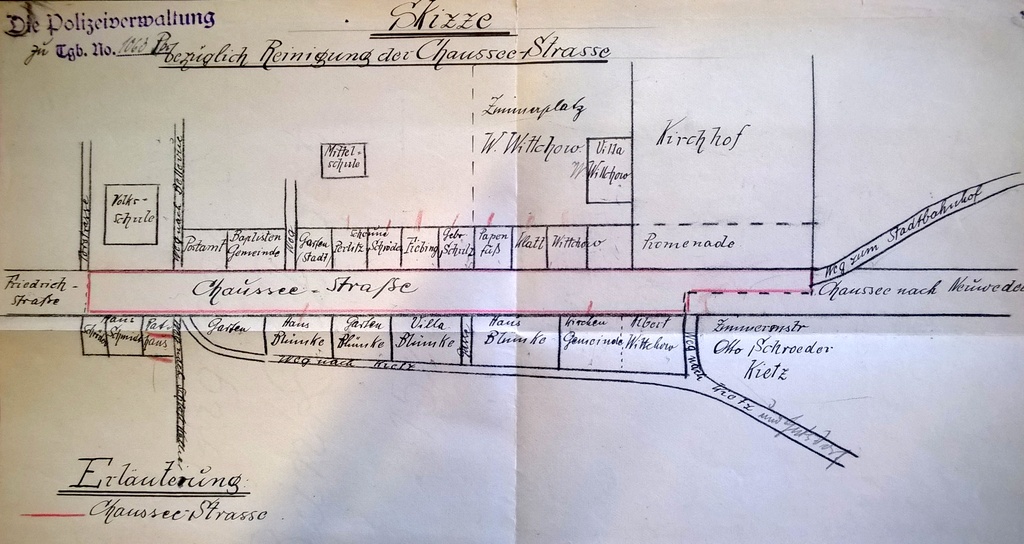 Die Polizeiverwaltung
zu Tgb. No.
Skizze
bezüglich Reinigung der Chaussee-Strasse
Zimmerplatz
W. Wittchow
Villa
W Wittchow
Kirchhof
Mittel-
schule
Volks-
schule
Weg nach Bellevue
Postamt
Baptisten
Gemeinde
Weg
Garten
(Stadt)
Perlitz
Schröder
Fibing
Gebr
Schulz
Papen
fuß
Wittchow
Promenade
Weg zum Stadtbahnhof
Friedrich-
straße
Chaussee-Straße
Chaussee nach Neuwedel
Haus
Schmidt
Garten
Haus
Blümke
Garten
Blümke
Villa
Blümke
Haus
Blümke
Kirchen
Gemeinde
Albert
Wittchow
Zimmermstr
Otto Schroeder
Kietz
Weg nach Kietz
Weg nach
und
Erläuterung
Chaussee-Strasse